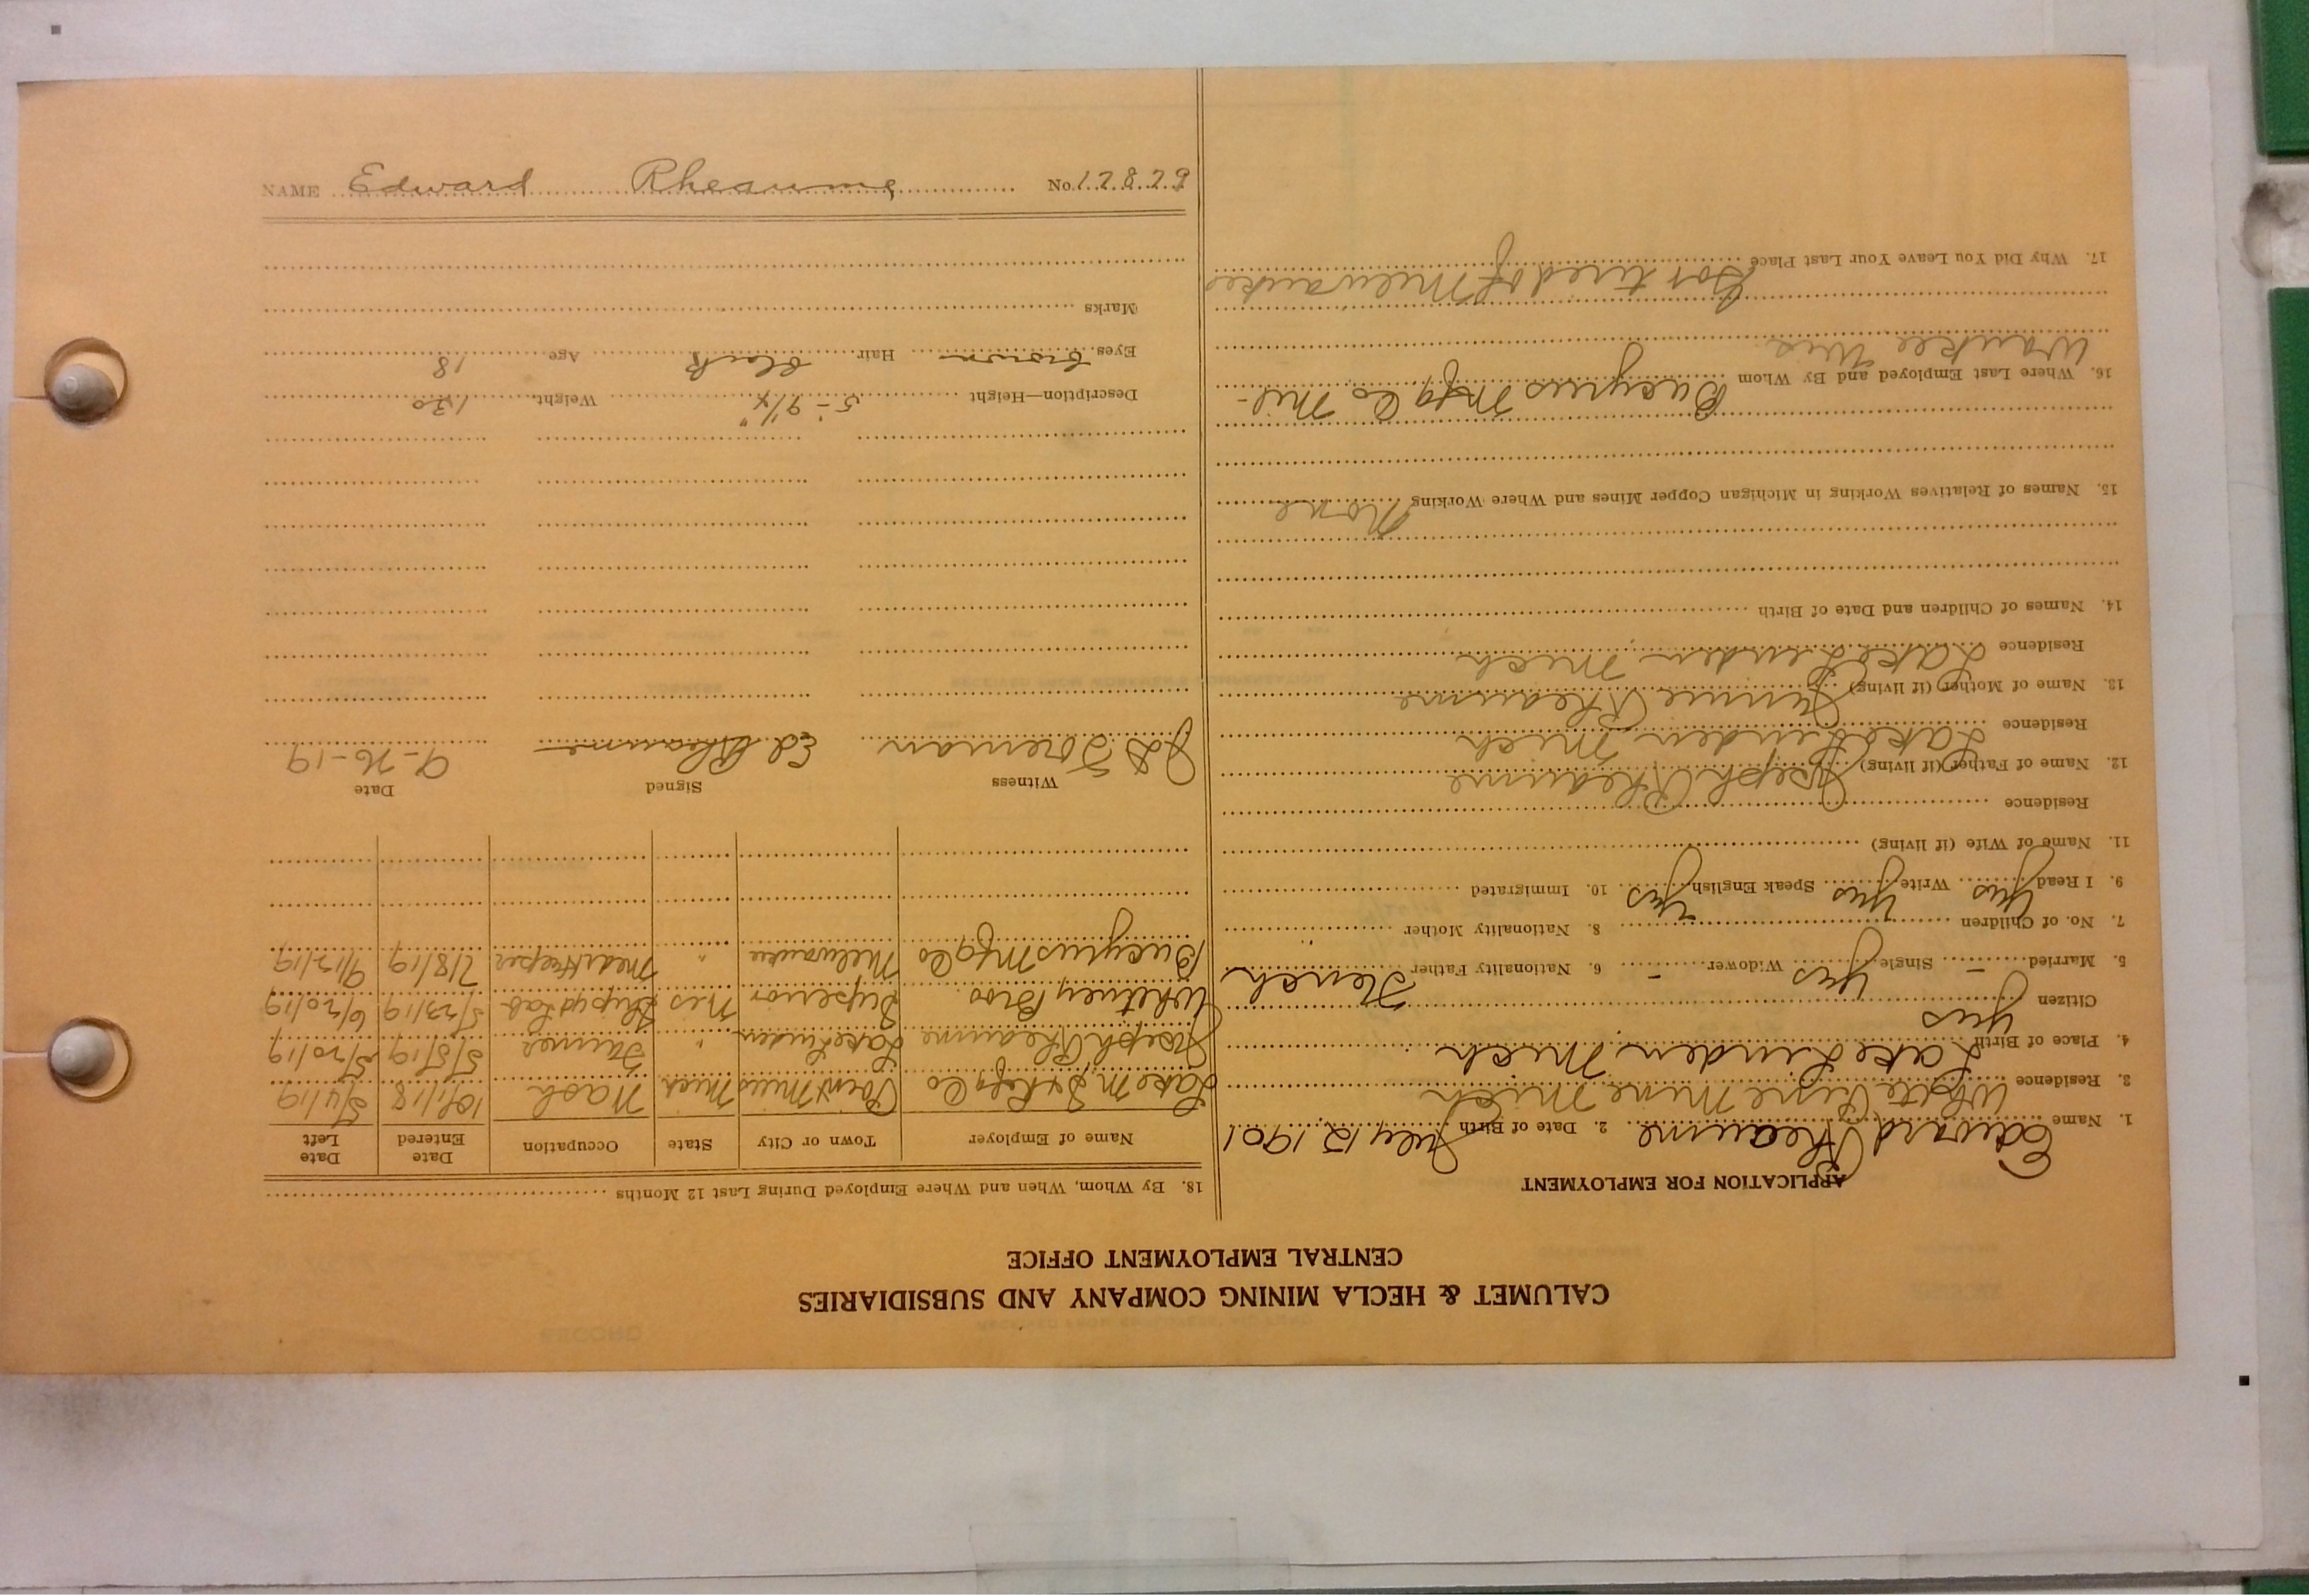 CALUMET & HECLA MINING COMPANY AND SUBSIDIARIES
CENTRAL EMPLOYMENT OFFICE
APPLICATION FOR EMPLOYMENT
1. Name Edward Rheaume 2. Date of Birth July 12, 1901
3. Residence White Pine Mine Mich
4. Place of Birth Lake Linden Mich
Citizen yes
5. Married - Single yes Widower - 6. Nationality Father French
7. No. of Children 8. Nationality Mother "
9. I Read yes Write yes Speak English yes 10. Immigrated
11. Name of Wife (if living)
Residence
12. Name of Father (if living) Joseph Rheaume
Residence Lake Linden Mich
13. Name of Mother (if living) Rheaume
Residence Lake Linden Mich
14. Names of Children and Date of Birth
15. Names of Relatives Working in Michigan Copper Mines and Where Working None
16. Where Last Employed and By Whom Bucyrus Mfg Co Mil-
waukee Wis
17. Why Did You Leave Your Last Place Got tired of Milwaukee
18. By Whom, When and Where Employed During Last 12 Months
Name of Employer Town or City State Occupation Date Entered Date Left
Lake M S & Rfg Co Point Mills Mich Wash 10/1/18 5/4/19
Joseph Rheaume Lake Linden " Farmer 5/5/19 5/20/19
Whitney Bros Superior Wis Shipyd Lab 5/23/19 6/20/19
Bucyrus Mfg Co Milwaukee " 7/8/19 9/12/19
Witness Signed Date
Foreman Ed. Rheaume 9-26-19
Description—Height 5-9 1/4" Weight 130
Eyes brown Hair black Age 18
Marks
NAME Edward Rheaume No. 12829